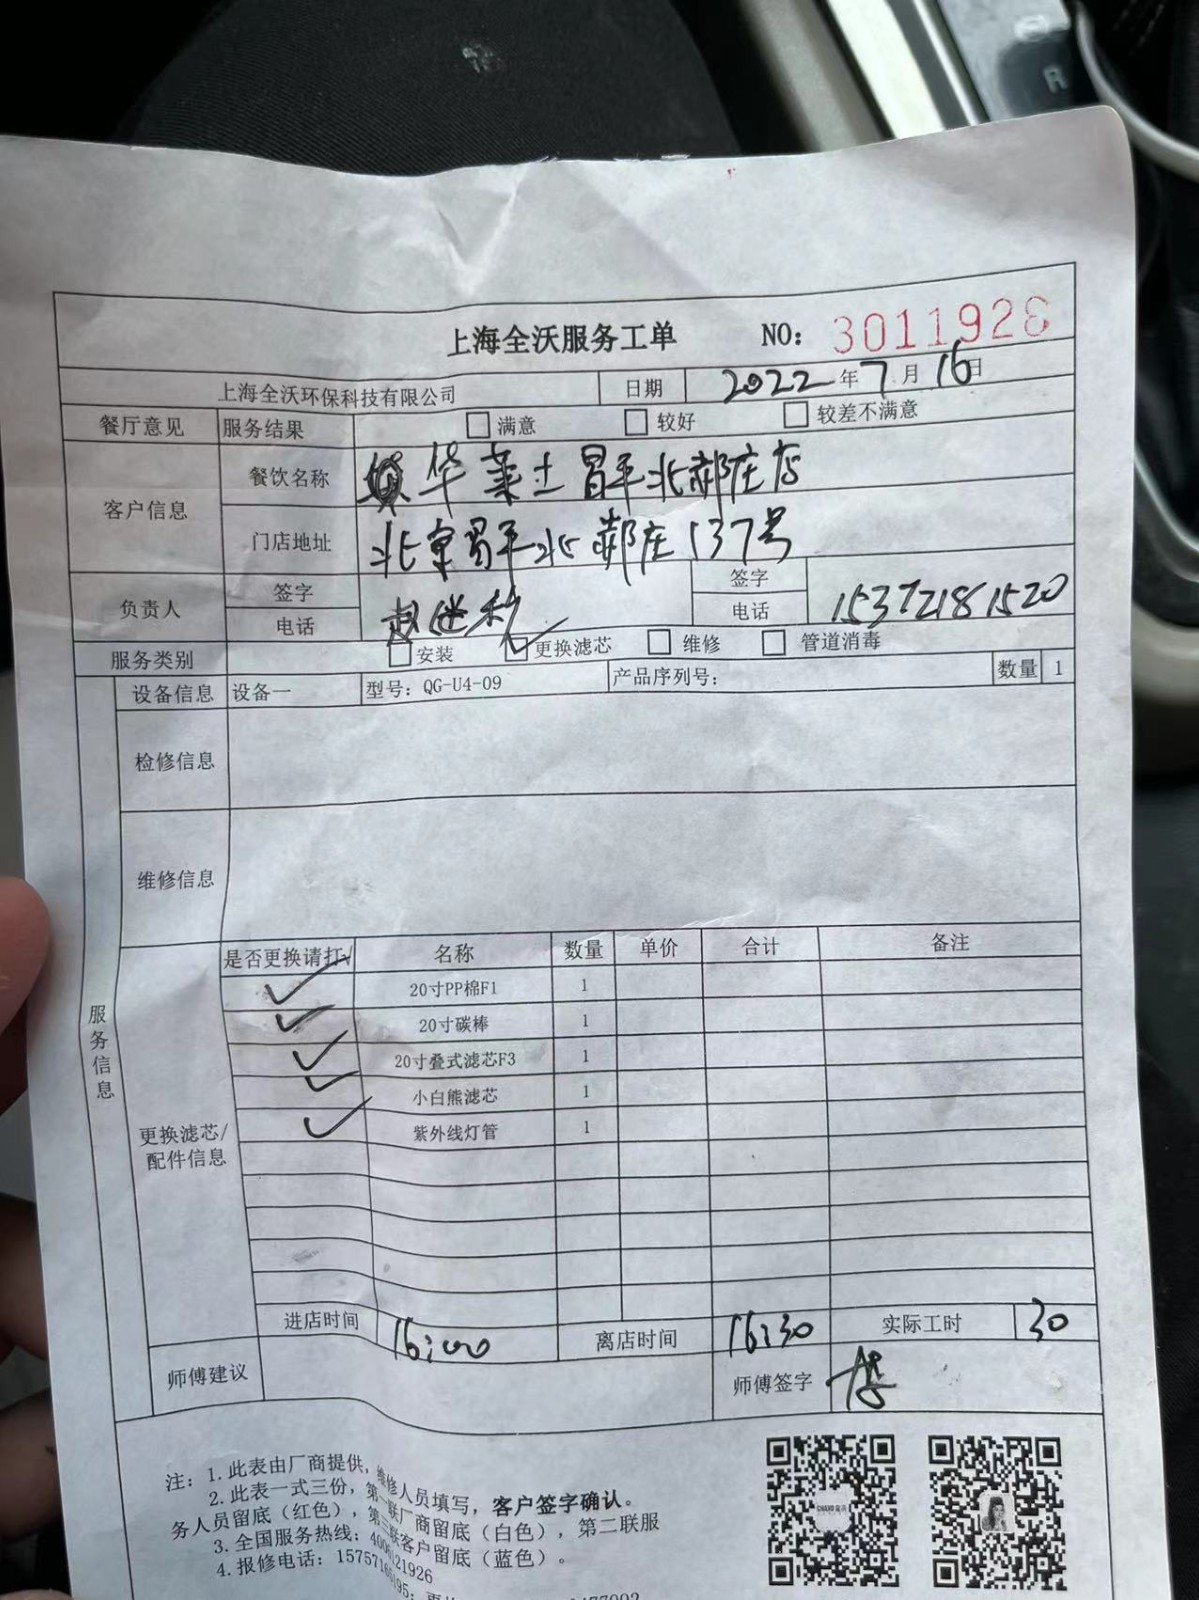 上海全沃服务工单 NO: 3011928
上海全沃环保科技有限公司 日期 2022年7月16日
餐厅意见 服务结果 满意 较好 较差不满意
客户信息 餐饮名称 华莱士昌平北郝庄店
门店地址 北京昌平北郝庄137号
负责人 签字 签字
电话 电话 15372181520
服务类别 安装 更换滤芯 维修 管道消毒
服务信息
设备信息 设备一 型号: QG-U4-09 产品序列号: 数量 1
检修信息
维修信息
更换滤芯/
配件信息
是否更换请打√ 名称 数量 单价 合计 备注
✓ 20寸PP棉F1 1
✓ 20寸碳棒 1
✓ 20寸叠式滤芯F3 1
✓ 小白熊滤芯 1
✓ 紫外线灯管 1
进店时间 16:00 离店时间 16:30 实际工时 30
师傅建议 师傅签字
注: 1.此表由厂商提供, 维修人员填写, 客户签字确认。
2.此表一式三份, 第一联厂商留底(白色), 第二联服
务人员留底(红色), 第三联客户留底(蓝色)。
3.全国服务热线: 4006121926
4.报修电话: